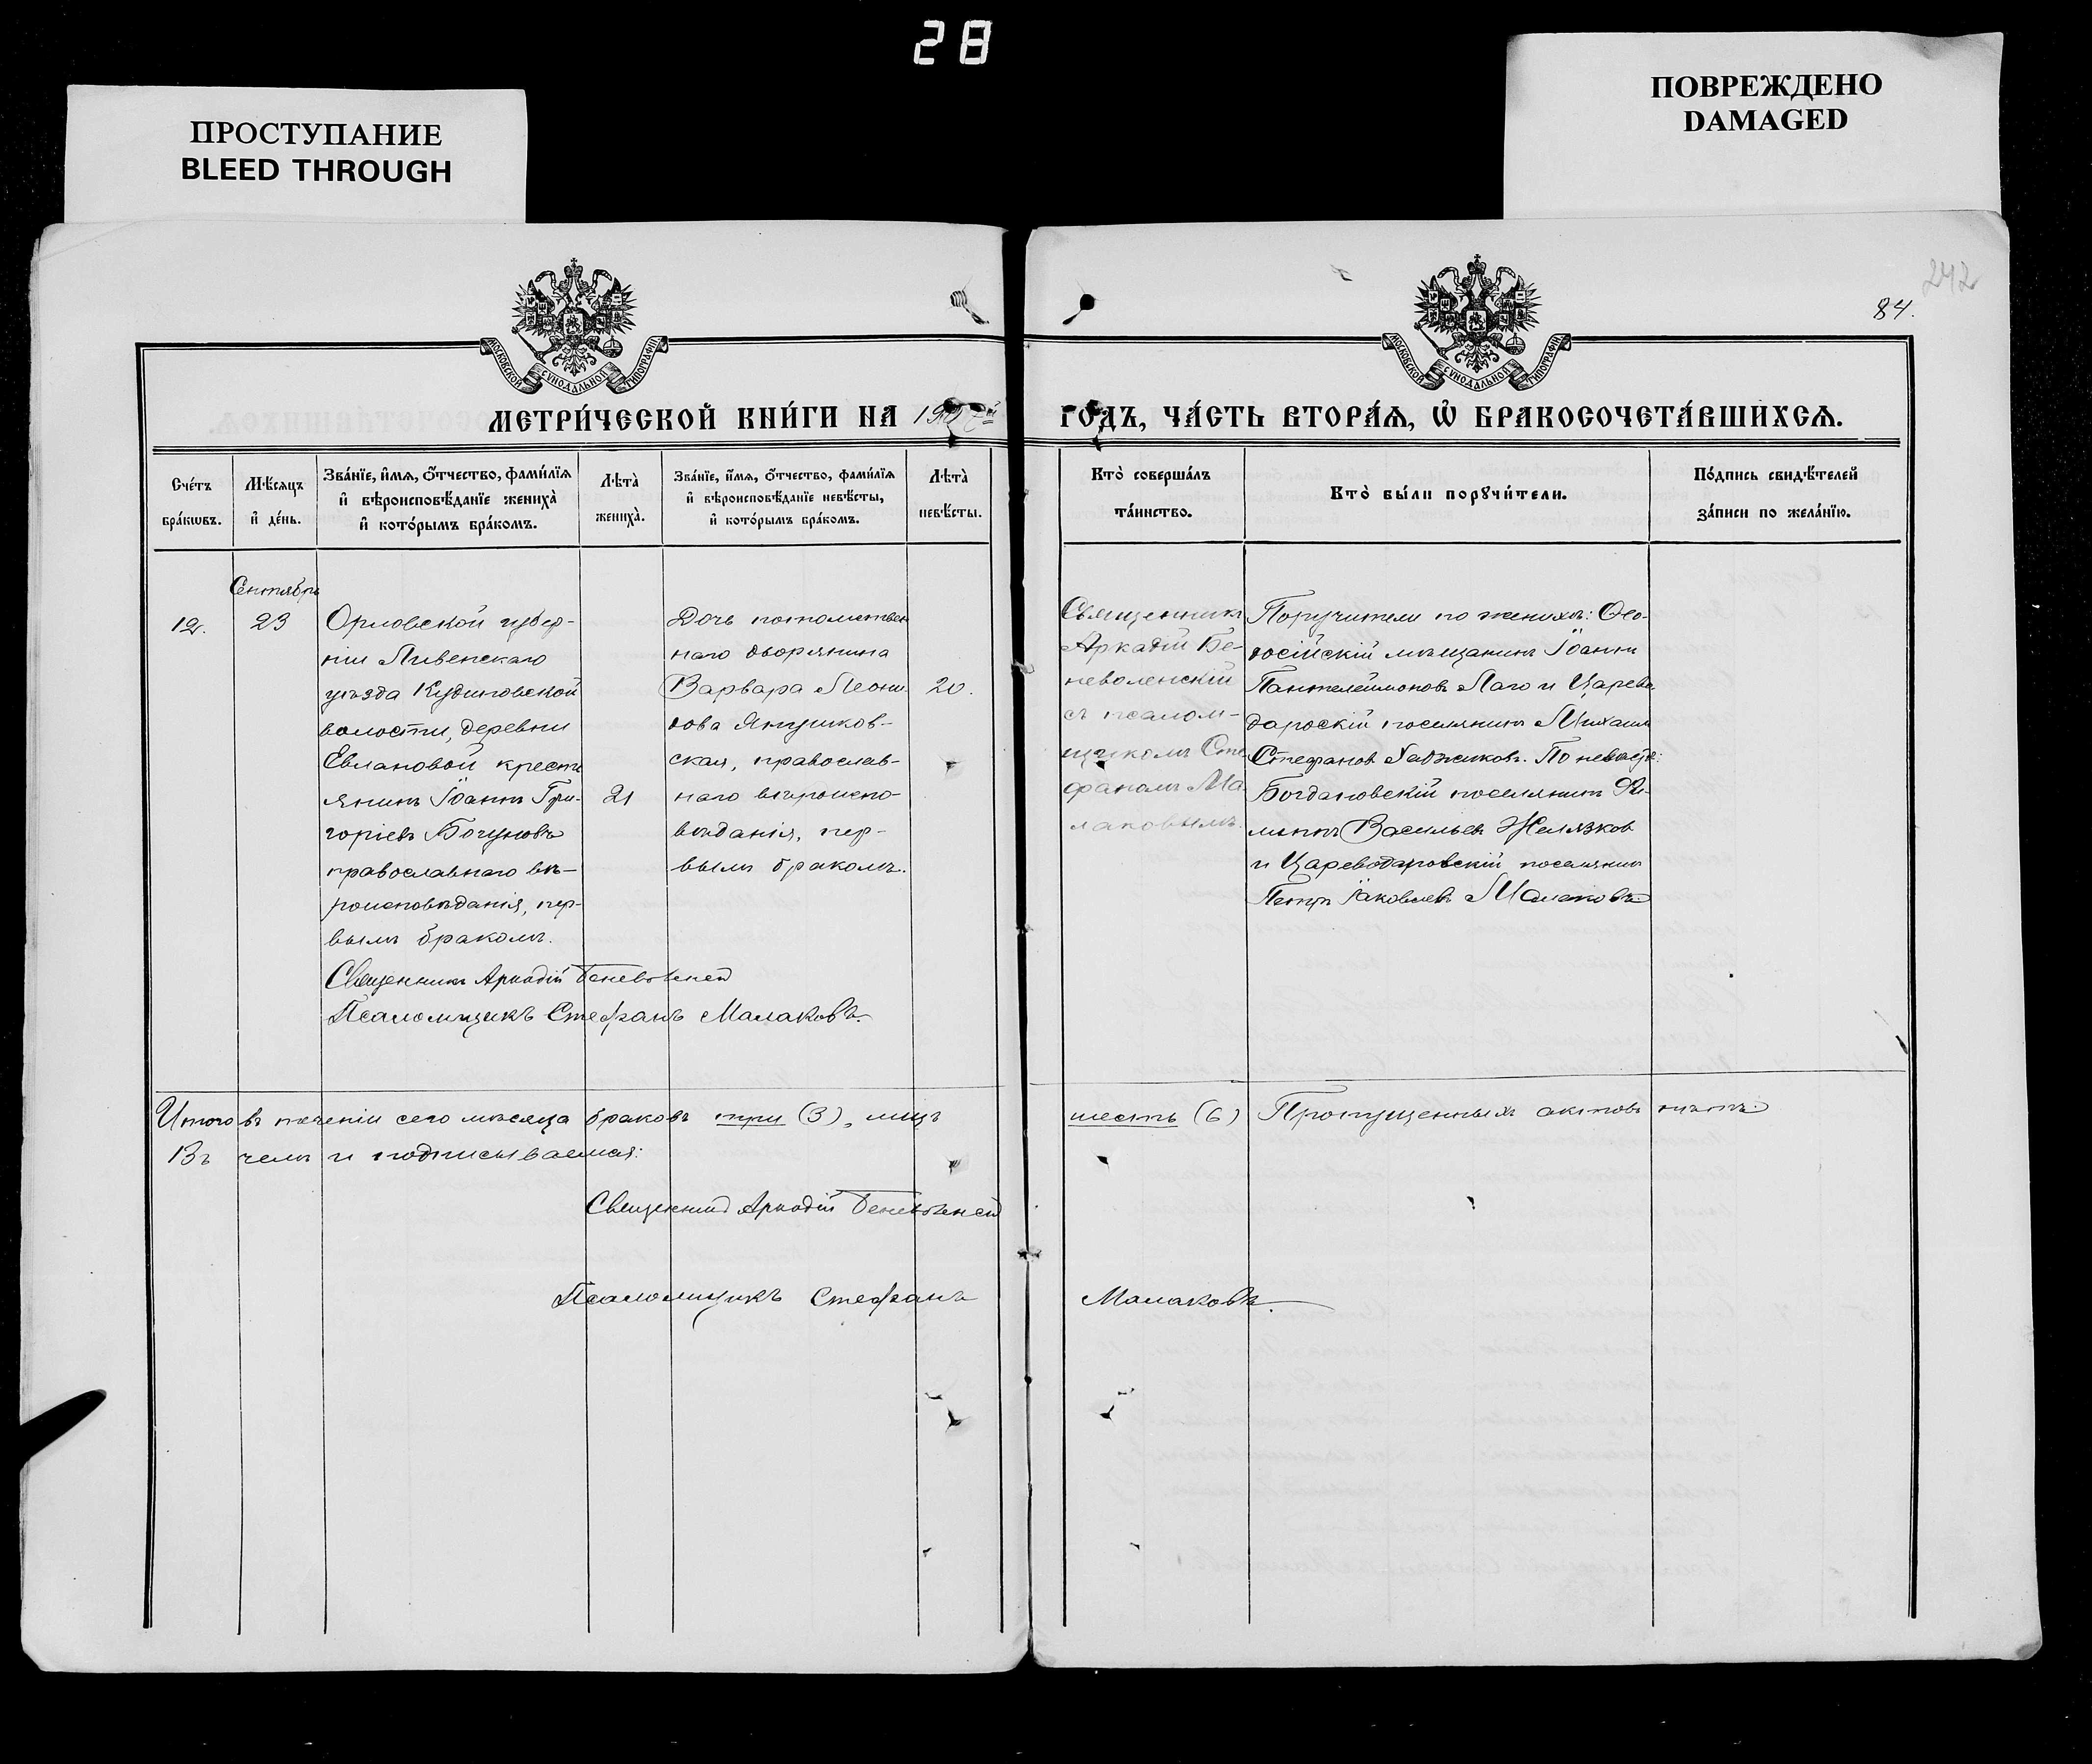 28
ПРОСТУПАНИЕ
BLEED THROUGH
ПОВРЕЖДЕНО
DAMAGED
242
84.
МОСКОВСКОЙ СѴНОДАЛЬНОЙ ТИПОГРАФІИ
МОСКОВСКОЙ СѴНОДАЛЬНОЙ ТИПОГРАФІИ
МЕТРИ́ЧЕСКОЙ КНИ́ГИ НА
ГОДЪ, ЧА́СТЬ ВТОРА́Ѧ, Ѡ҆ БРАКОСОЧЕТА́ВШИХСѦ.
Сче́тъ
бра́кѡвъ.
Мѣ́сѧцъ
и҆ де́нь.
Зва́нїе, и҆́мѧ, ѻ҆́тчество, фами́лїѧ
и҆ вѣроисповѣ́данїе жениха̀
и҆ кото́рымъ бра́комъ.
Лѣта̀
жениха̀.
Зва́нїе, и҆́мѧ, ѻ҆́тчество, фами́лїѧ
и҆ вѣроисповѣ́данїе невѣ́сты,
и҆ кото́рымъ бра́комъ.
Лѣта̀
невѣ́сты.
Кто̀ соверша́лъ
та́инство.
Кто̀ бы́ли порꙋчи́тели.
По́дпись свидѣ́телей
за́писи по жела́нїю.
12.
Сентябрь
23
Орловской губер-
ніи Ливенскаго
уѣзда Кудиновской
волости, деревни
Евлановой крестъ
янинъ Іоаннъ Гри-
горіевъ Богуновъ
православнаго вѣ-
роисповѣданія, пер-
вымъ бракомъ.
21
Дочь потомствен
наго дворянина
Варвара Леони
дова Янушков-
ская, православ-
наго вѣроиспо-
вѣданія, пер-
вымъ бракомъ.
20.
Священникъ
Аркадій Бе-
неволенскій
съ псалом-
щикомъ Сте
фаномъ Ма
лаковымъ.
Поручители по женихѣ: Ѳео-
досійскій мѣщанинъ Іоаннъ
Пантелеймоновъ Лаго и Царево
дарскій поселянинъ Михаилъ
Стефановъ Хаджиковъ. По невѣстѣ:
Богдановскій поселянинъ Фи-
липпъ Васильевъ Желязков
и Цареводаровскій поселянинъ
Петръ Іаковлевъ
Священникъ Аркадій Беневоленскій
Псаломщикъ Стефанъ Малаковъ.
Итого въ теченіи сего мѣсяца браковъ три (3), лицъ шесть (6) Пропущенныхъ актовъ нѣтъ.
Въ чемъ и подписываемся:
Священникъ Аркадій Беневоленскій
Псаломщикъ Стефанъ Малаковъ.